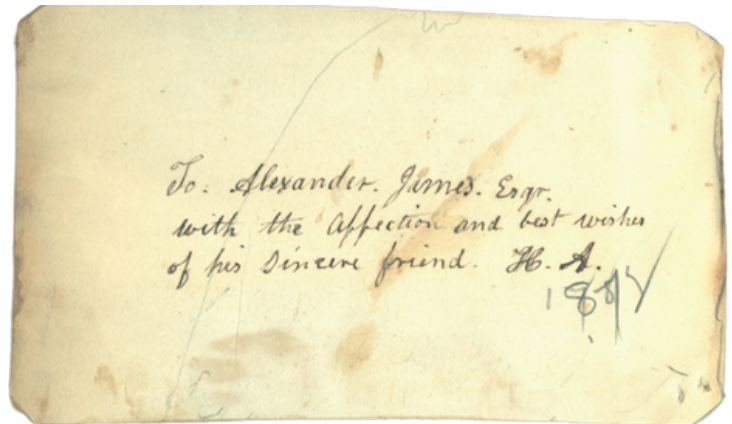 To. Alexander. James. Esqr.
with the Affection and best wishes
of his Sincere friend. H. A.